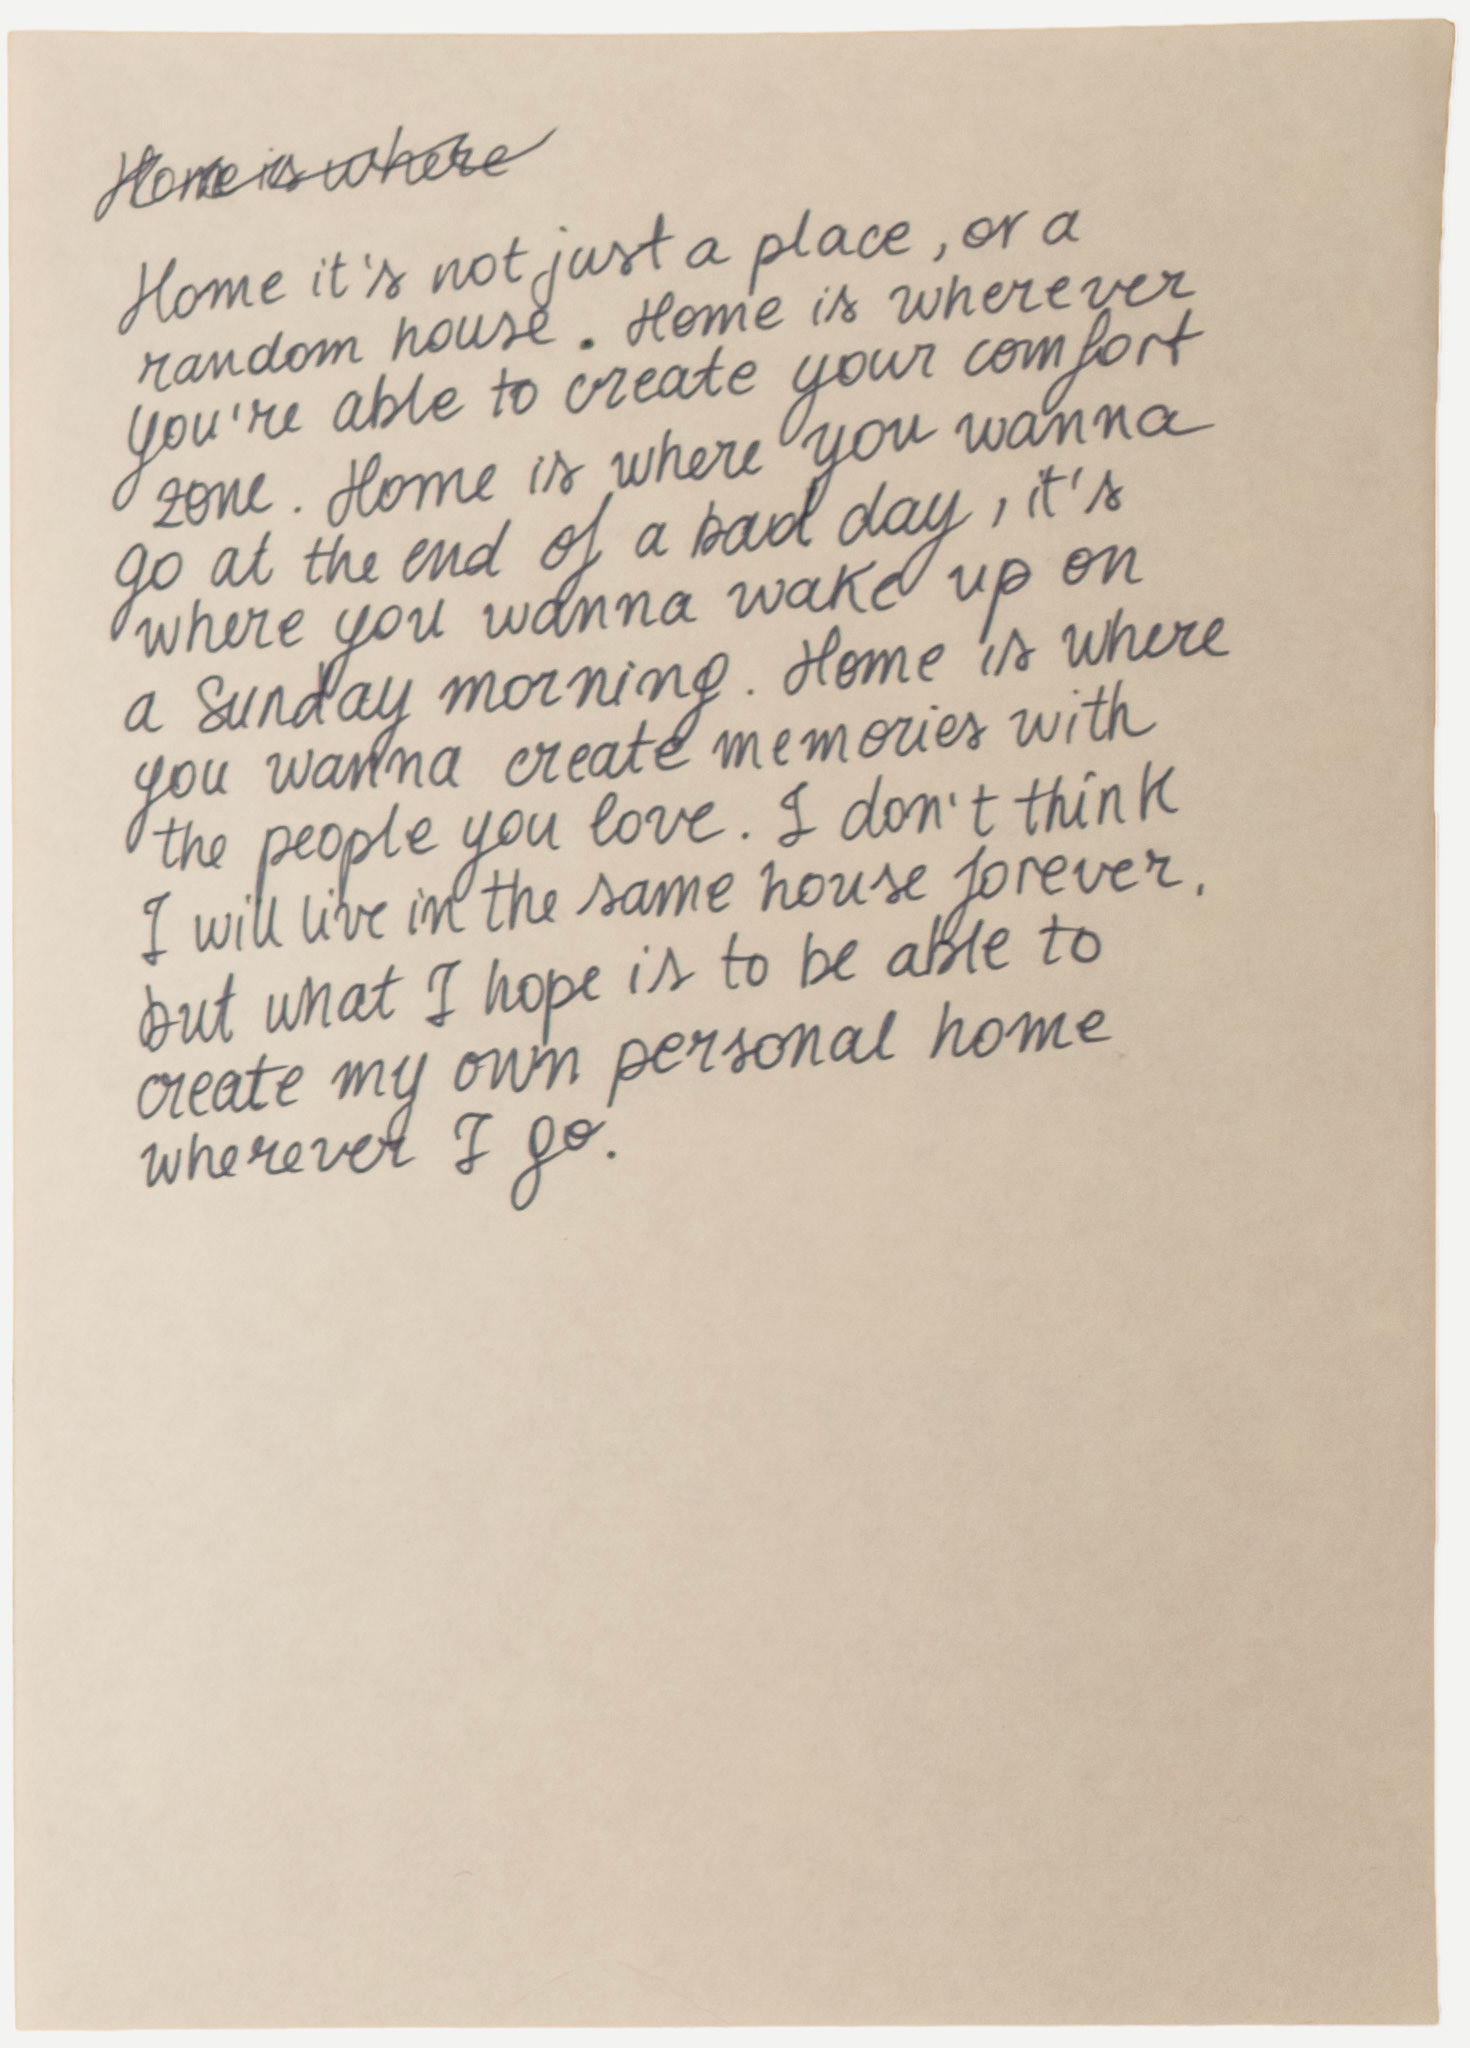 Home is where
Home it's not just a place, or a
random house. Home is wherever
you're able to create your comfort
zone. Home is where you wanna
go at the end of a bad day, it's
where you wanna wake up on
a Sunday morning. Home is where
you wanna create memories with
the people you love. I don't think
I will live in the same house forever,
but what I hope is to be able to
create my own personal home
wherever I go.